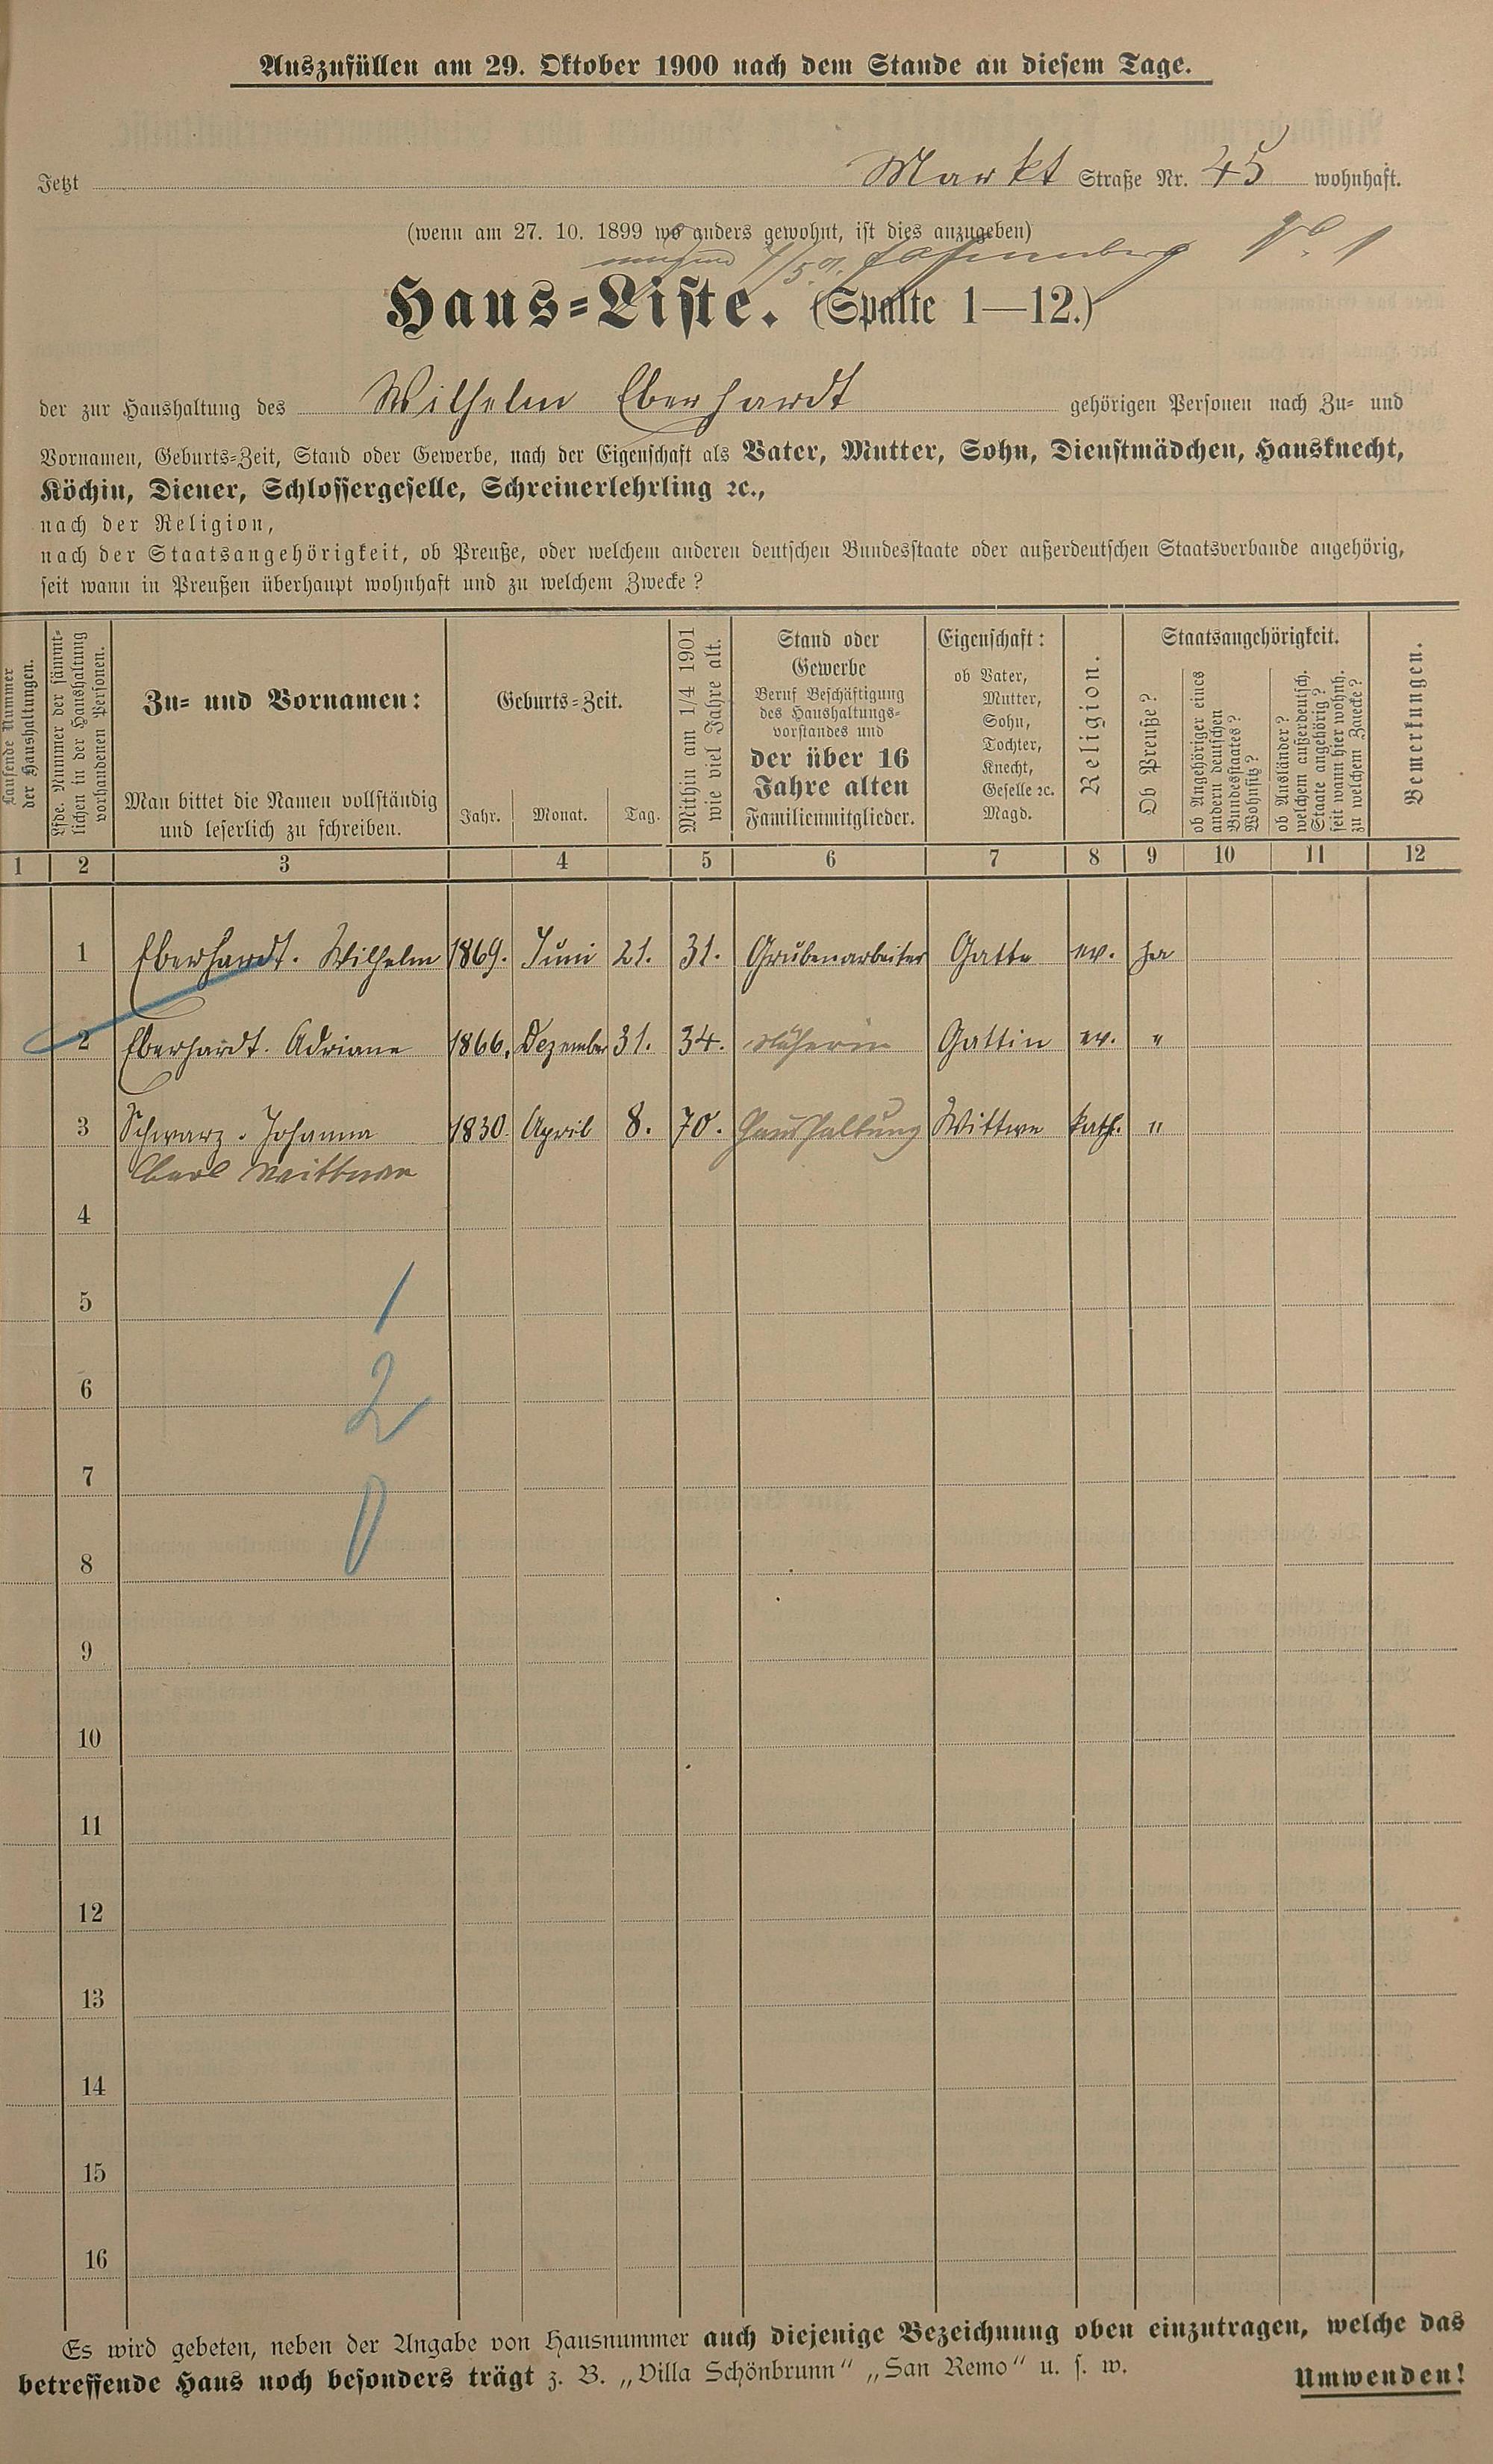 Auszufüllen am 29. Oktober 1900 nach dem Stande an diesem Tage.
Jetzt Markt Straße Nr. 45 wohnhaft.
(wenn am 27. 10. 1899 wo anders gewohnt, ist dies anzugeben)
No. 1
Haus-Liste. (Spalte 1—12.)
der zur Haushaltung des Wilhelm Eberhardt gehörigen Personen nach Zu- und
Vornamen, Geburts-Zeit, Stand oder Gewerbe, nach der Eigenschaft als Vater, Mutter, Sohn, Dienstmädchen, Hausknecht,
Köchin, Diener, Schlossergeselle, Schreinerlehrling ꝛc.,
nach der Religion,
nach der Staatsangehörigkeit, ob Preuße, oder welchem anderen deutschen Bundesstaate oder außerdeutschen Staatsverbande angehörig,
seit wann in Preußen überhaupt wohnhaft und zu welchem Zwecke?
Laufende Nummer der Haushaltungen.
Lfde. Nummer der sämmtlichen in der Haushaltung vorhandenen Personen.
Zu- und Vornamen:
Man bittet die Namen vollständig
und leserlich zu schreiben.
Geburts-Zeit.
Jahr. Monat. Tag.
Mithin am 1/4 1901
wie viel Jahre alt.
Stand oder
Gewerbe
Beruf Beschäftigung
des Haushaltungs-
vorstandes und
der über 16
Jahre alten
Familienmitglieder.
Eigenschaft:
ob Vater,
Mutter,
Sohn,
Tochter,
Knecht,
Geselle ꝛc.
Magd.
Religion.
Staatsangehörigkeit.
Ob Preuße?
ob Angehöriger eines
andern deutschen
Bundesstaates?
Wohnsitz?
ob Ausländer?
welchem außerdeutsch.
Staate angehörig?
seit wann hier wohnh.
zu welchem Zwecke?
Bemerkungen.
1 2 3 4 5 6 7 8 9 10 11 12
1 Eberhardt. Wilhelm 1869. Juni 21. 31. Grubenarbeiter Gatte ev. ja
2 Eberhardt. Adriane 1866. Dezember 31. 34. Näherin Gattin ev. "
3 Schwarz. Johanna 1830. April 8. 70. Haushaltung Wittwe kath. "
Carl Wittwe
4
5 1
6 2
7
8 0
9
10
11
12
13
14
15
16
Es wird gebeten, neben der Angabe von Hausnummer auch diejenige Bezeichnung oben einzutragen, welche das
betreffende Haus noch besonders trägt z. B. „Villa Schönbrunn" „San Remo" u. s. w.
Umwenden!